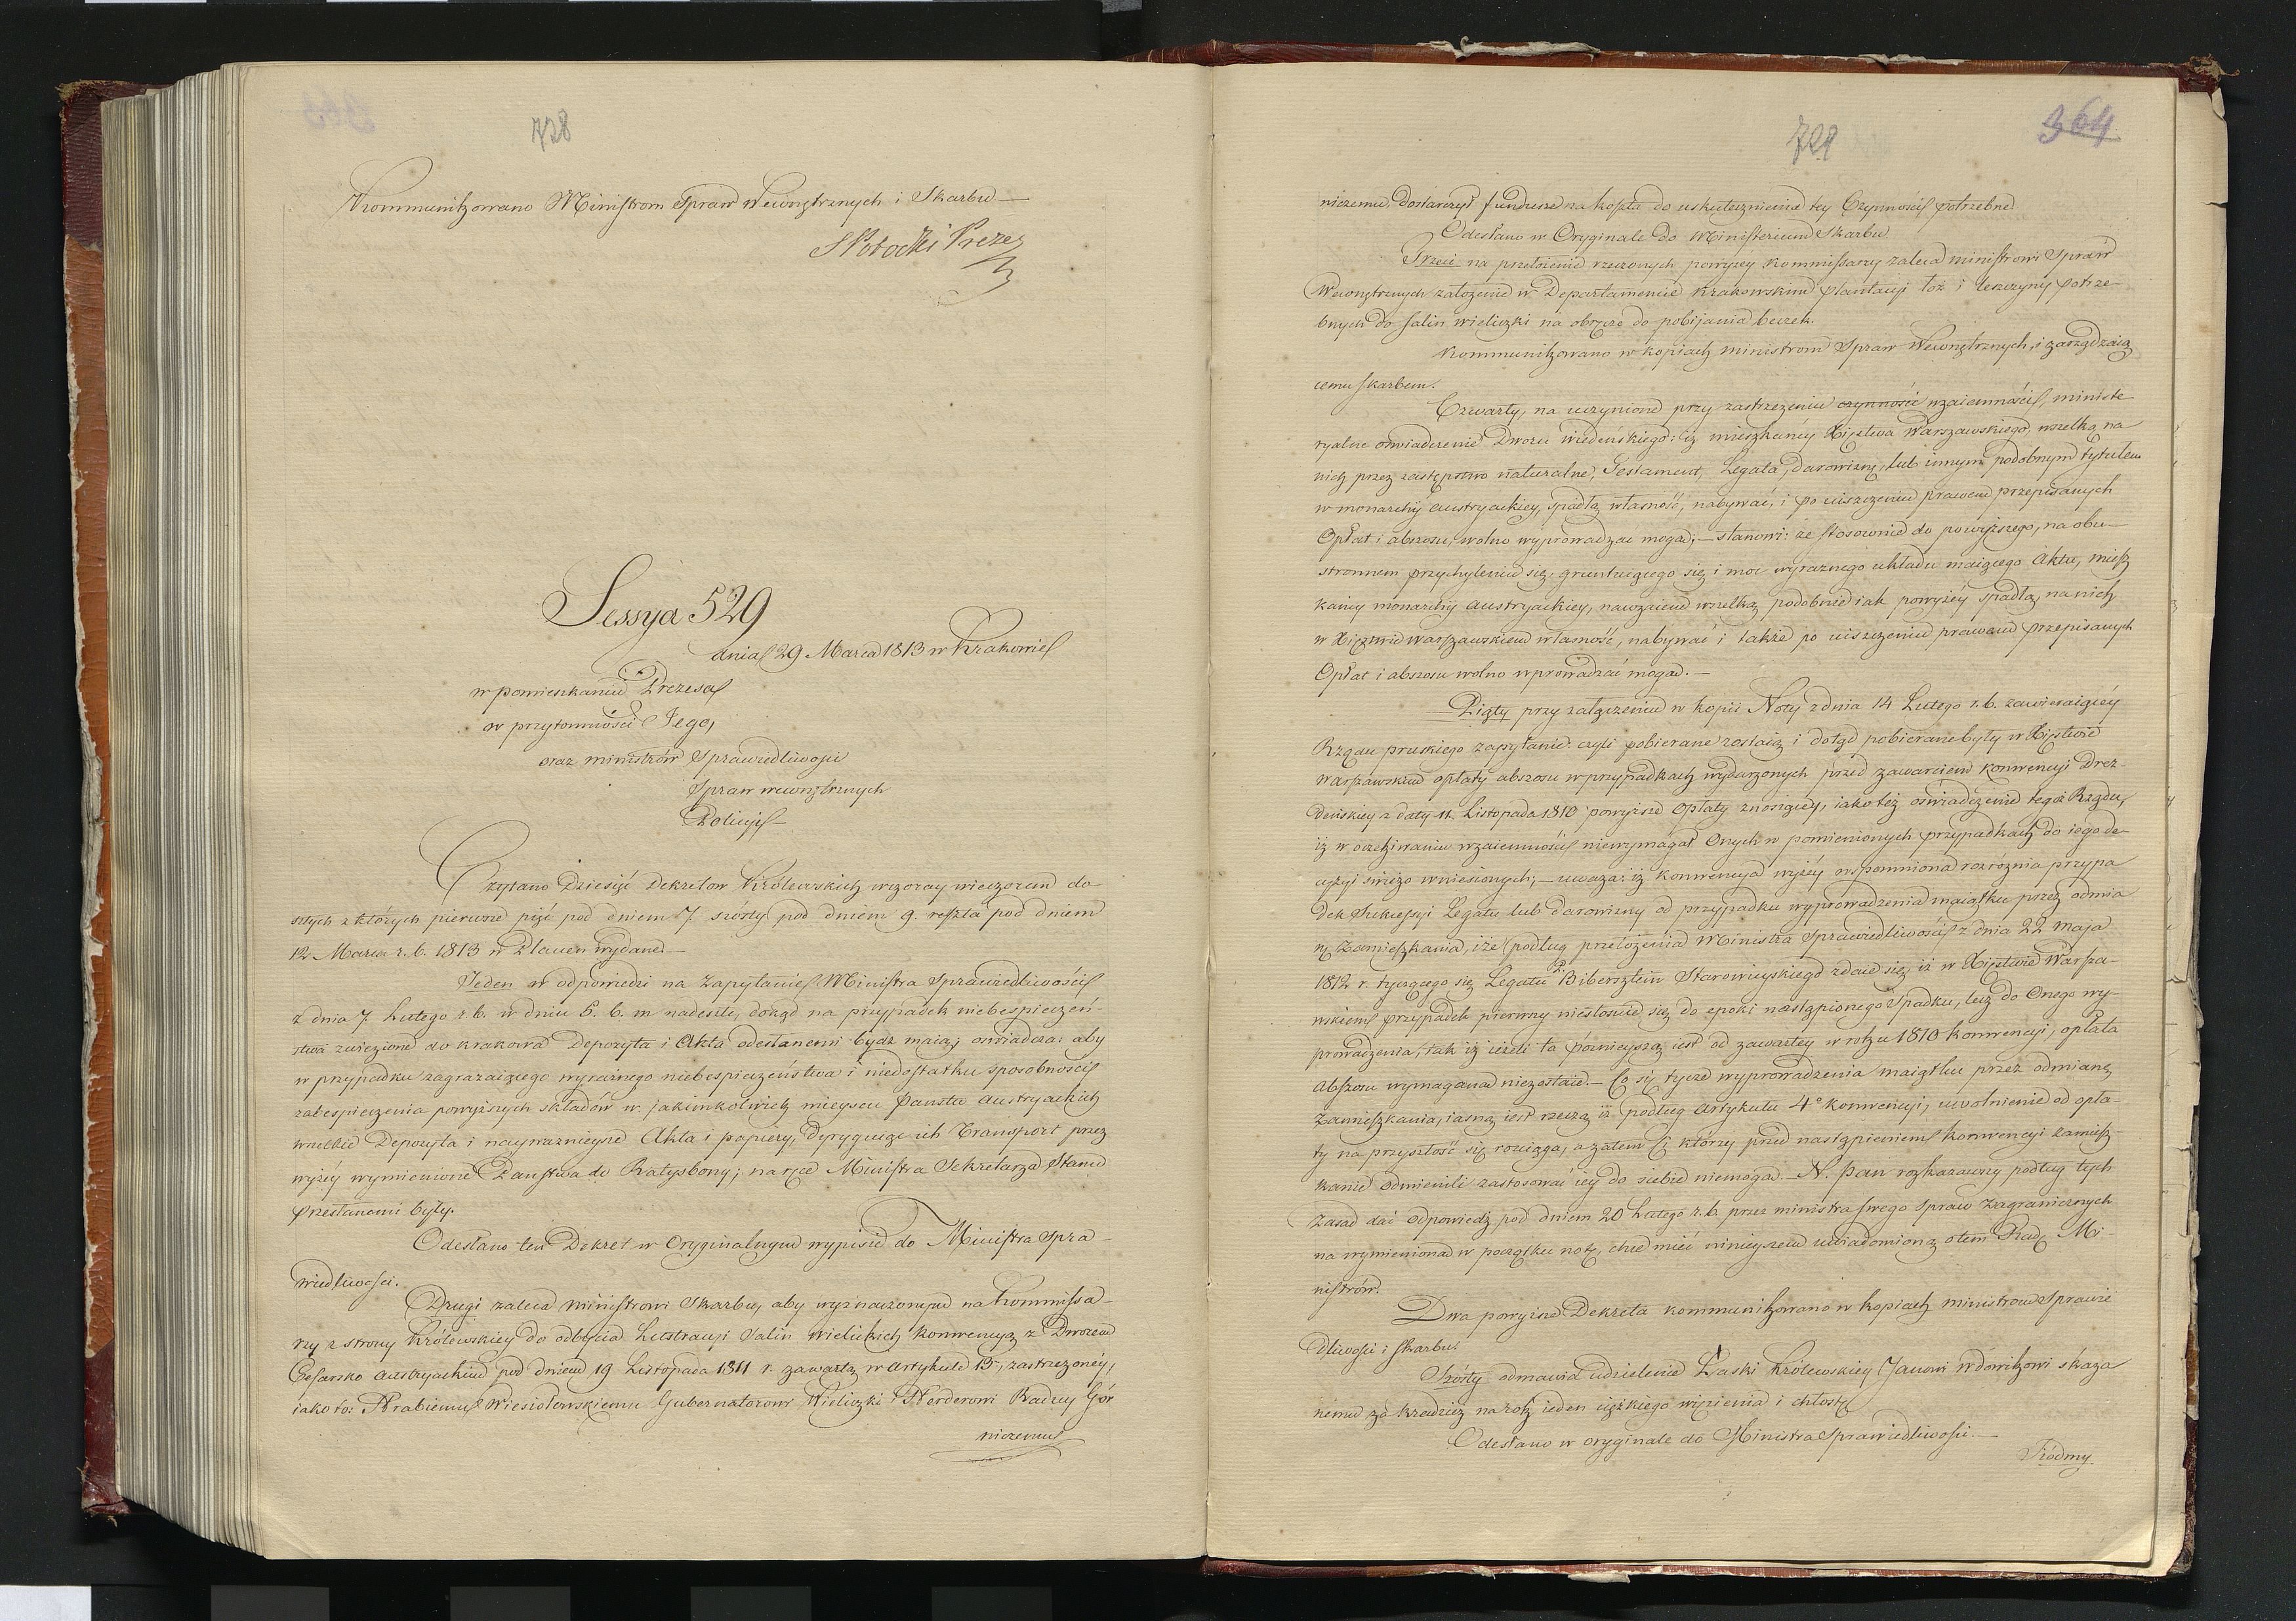 728
Kommunikowano Ministrom Spraw Wewnętrznych i Skarbu —
S Potocki Prezes
Sessya 529
dnia 29 Marca 1813 w Krakowie
w pomieszkaniu Prezesa
w przytomności Jego,
oraz ministrów Sprawiedliwości
Spraw wewnętrznych
Policyi —
Czytano Dziesięć Dekretow Królewskich wczoray wieczorem do-
szłych z których pierwsze pięć pod dniem 7. szósty pod dniem 9. reszta pod dniem
12 Marca r. b. 1813 w Plauen wydane —
Jeden w odpowiedzi na zapytanie Ministra Sprawiedliwości
z dnia 7 Lutego r. b. w dniu 5. b. m nadesłe, dokąd na przypadek niebespieczeń-
stwa zwiezione do Krakowa Depozyta i Akta odesłanemi bydź maią; oswiadcza: aby
w przypadku zagrażaiącego wyraźnego niebespieczeństwa i niedostatku sposobności
zabespieczenia powyższych składów w jakimkolwiek mieyscu Państw Austryackich
wszelkie Depozyta i nayważnieysze Akta i papiery, dyrygując ich Transport przez
wyżéy wymienione Państwa do Ratysbony; na ręce Ministra Sekretarza Stanu
przesłanemi były.
Odesłano ten Dekret w Oryginalnym wypisie do Ministra Spra-
wiedliwości.
Drugi zaleca ministrowi Skarbu, aby wyznaczonym na Kommissa-
rzy z strony Królewskiey do odbycia Lustracyi Salin wielickich Konwencyą z Dworem
Cesarsko Austryackim pod dniem 19 Listopada 1811 r. zawartą w artykule 15, zastrzeżonéy,
iako to: Hrabiemu Wiesiołowskiemu Gubernatorowi Wieliczki i Herderowi Radzcy Gór
niczemu
729
364
niczemu, dostarczył fundusze na koszta do uskutecznienia tey Czynności potrzebne
Odesłano w Oryginale do Ministerium Skarbu.
Trzeci na przełożenie rzeczonych powyżey Kommissarzy zaleca ministrowi Spraw
Wewnętrznych założenie w Departamencie Krakowskim plantacyi łoz i leszczyny potrze-
bnych do salin wieliczki na obręcze do pobijania beczek.
Kommunikowano w kopiach ministrom Spraw Wewnętrznych, i zarządzaią
cemu Skarbem.
Czwarty, na uczynione przy zastrzeżeniu czynność wzaiemności, ministe-
ryalne oswiadczenie Dworu wiedeńskiego: iż mieszkańcy Xięstwa Warszawskiego, wszelką na
nich przez zastępstwo naturalne, Testament, Legata, darowiznę, lub innym podobnym tytułem
w monarchij austryackiey, spadłą własność, nabywać, i po uiszczeniu prawem przepisanych
Opłat i abszosu, wolno wyprowadzać mogą; — stanowi: że stosownie do powyższego, na obu-
stronnem przychyleniu się gruntuiącego się i moc wyraźnego układu maiącego Aktu, miesz
kańcy monarchij austryackiey, nawzaiem wszelką, podobnie iak powyżéy spadłą na nich
w Xięstwie Warszawskiem własność, nabywać i także po uiszczeniu prawem przepisanych
Opłat i abszosu wolno wprowadzać mogą. —
Piąty przy załączeniu w kopii Noty z dnia 14 Lutego r. b. zawieraiącéy
Rządu pruskiego zapytanie: czyli pobierane zostaią i dotąd pobierane były w Xięstwie
Warszawskim opłaty abszosu w przypadkach wydarzonych przed zawarciem konwencyi Drez-
deńskiey z daty 11. Listopada 1810 powyższe Opłaty znosiącey, iako też oświadczenie tegoż Rządu,
iż w oczekiwaniu wzaiemności niewymagał Onych w pomienionych przypadkach do iego de-
cyzyi swieżo wniesionych; — uważa: iż konwencya wyżéy wspomniona rozróżnia przypa
dek Sukcessyi Legatu lub darowizny od przypadku wyprowadzenia maiątku przez odmia
nę Zamieszkania, i że podług przełożenia Ministra Sprawiedliwości z dnia 22 maja
1812 r. tyczącego się Legatu P. Bibersztein Starowieyskiego zdaie się iż w Xięstwie Warsza-
wskiem przypadek pierwszy niestosuie się do epoki nastąpionego Spadku, lecz do Onego wy-
prowadzenia, tak iż ieżeli ta późnieyszą iest od zawartey w roku 1810 konwencyi, opłata
Abszosu wymaganą niezostaie. — Co się tycze wyprowadzenia maiątku przez odmianę
Zamieszkania, iasną iest rzeczą iż podług artykułu 4º konwencyi, uwolnienie od opła-
ty na przyszłość się rozciąga, a zatem ci którzy przed nastąpieniem konwencyi zamiesz-
kanie odmienili zastosować iey do siebie niemogą. — N. Pan rozkazawszy podług tych
Zasad dać odpowiedź pod dniem 20 Lutego r. b. przez ministra swego Spraw Zagranicznych
na wymienioną w początku notę, chce mieć ninieyszem uwiadomioną o tem Radę Mi-
nistrów.
Dwa powyższe Dekreta kommunikowano w kopiach ministrom Sprawie
dliwości i Skarbu.
Szósty odmawia udzielenie Łaski Królewskiey Janowi Wdowikowi skaza
nemu za kradzież na rok ieden ciężkiego więzienia i chłostę
Odesłano w oryginale do Ministra Sprawiedliwości —
Siódmy